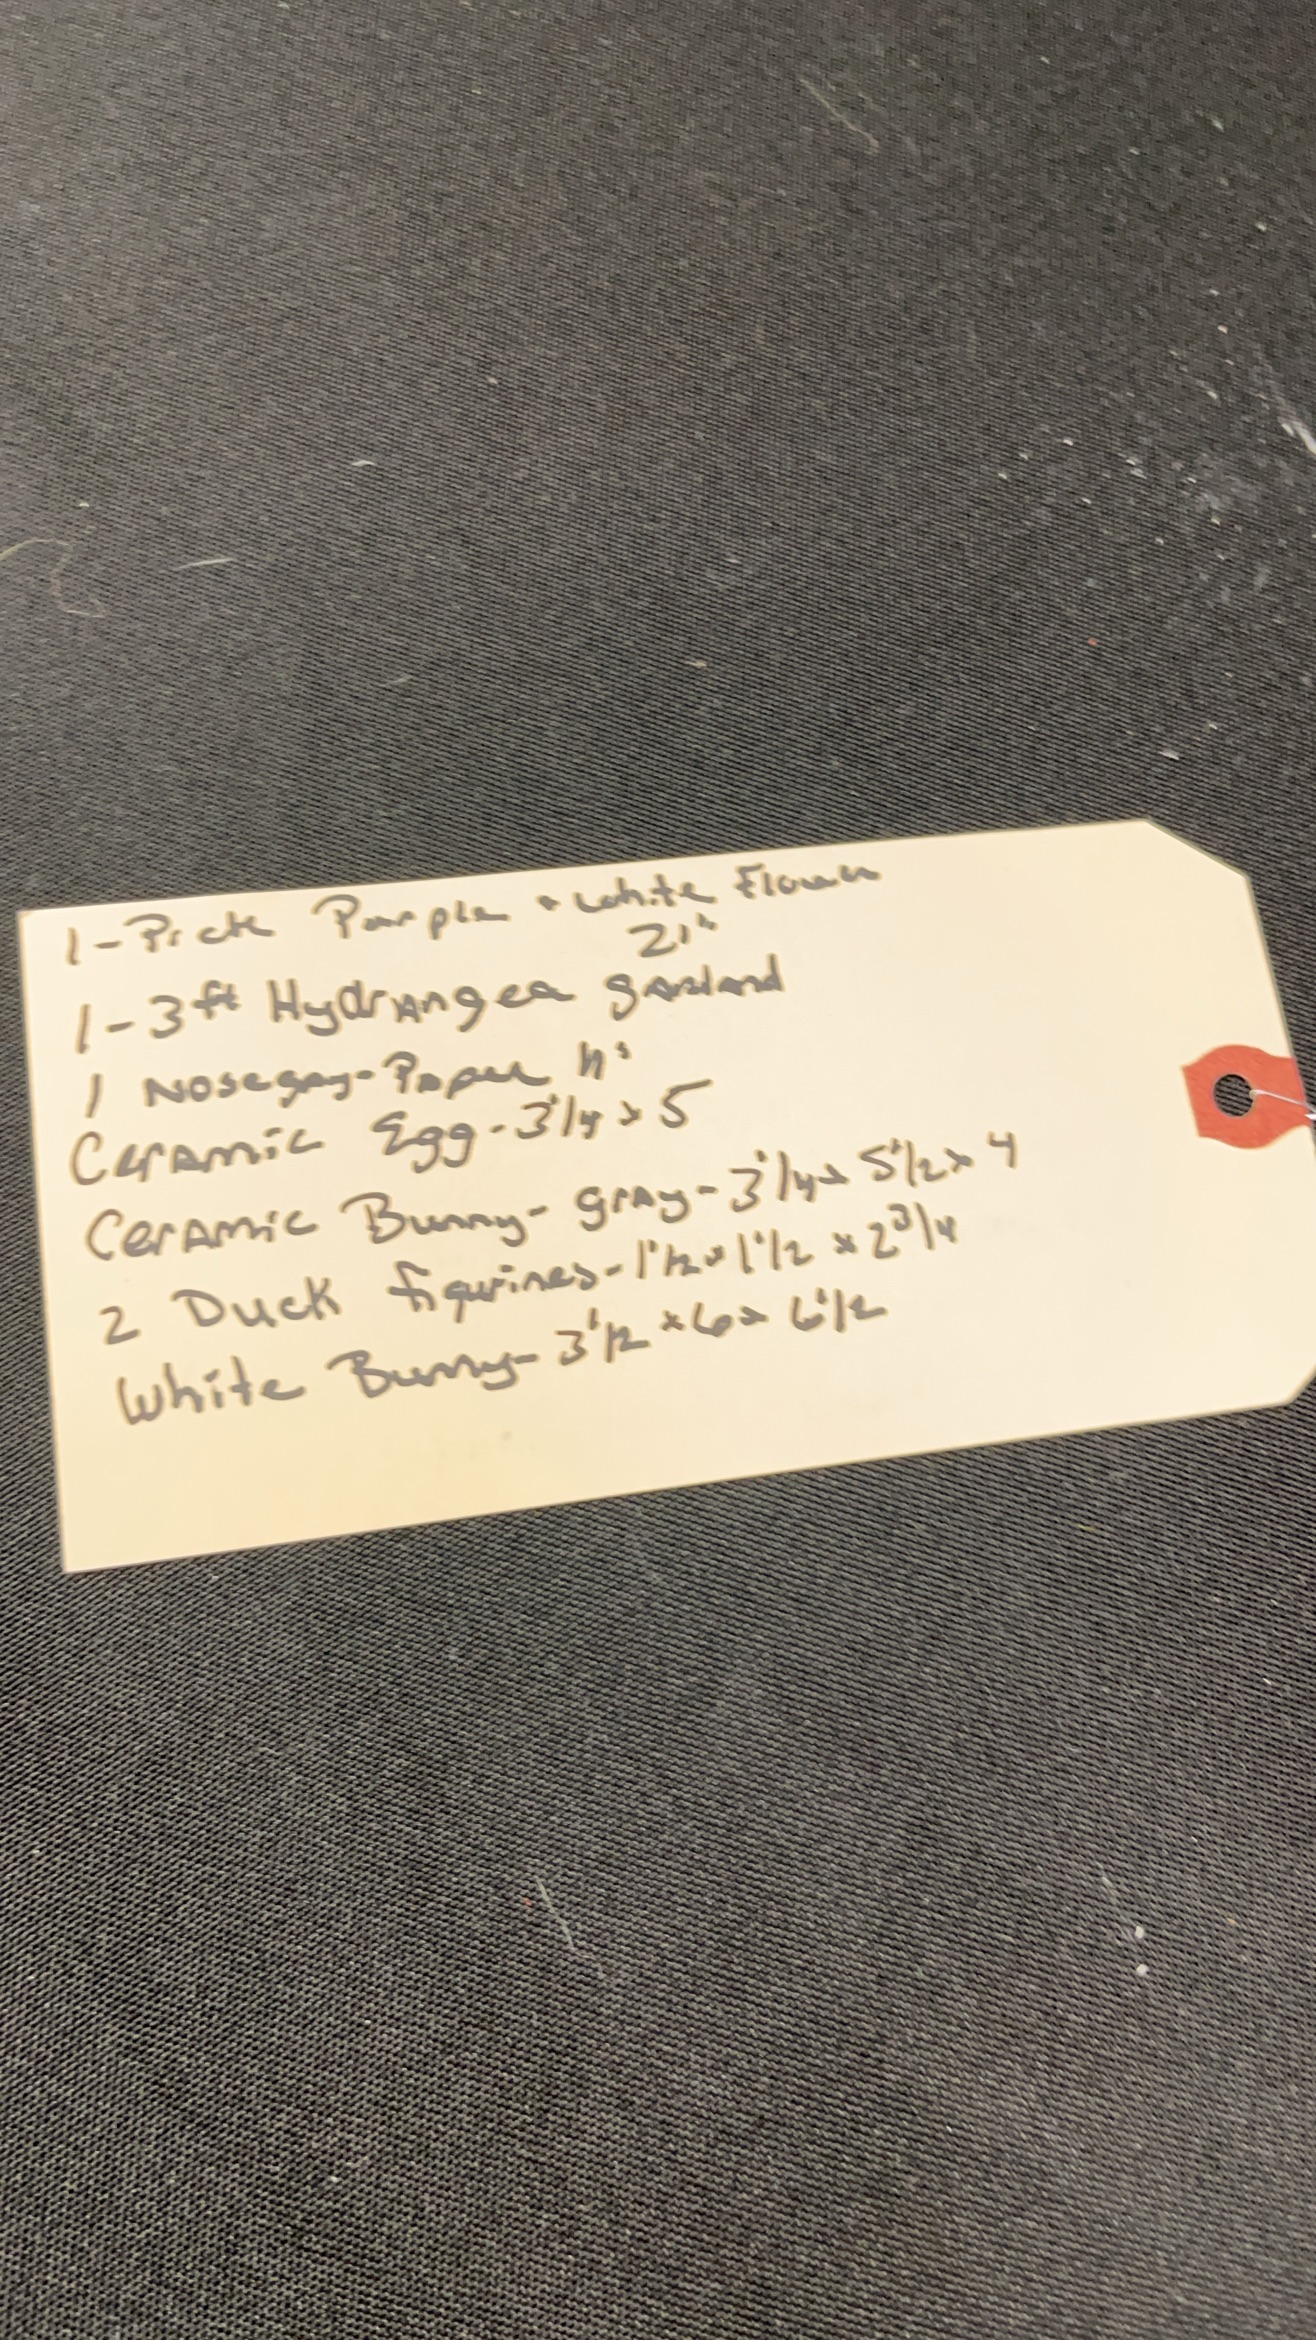 1-Pick Purple + white Flower
21"
1-3ft Hydrangea garland
1 Nosegay-Paper
Ceramic Egg-3 1/4 x 5
Ceramic Bunny- gray-3 1/4 x 5 1/2 x 4
2 Duck figurines-1 1/2 x 1 1/2 x 2 3/4
White Bunny-3 1/2 x 6 x 6 1/2